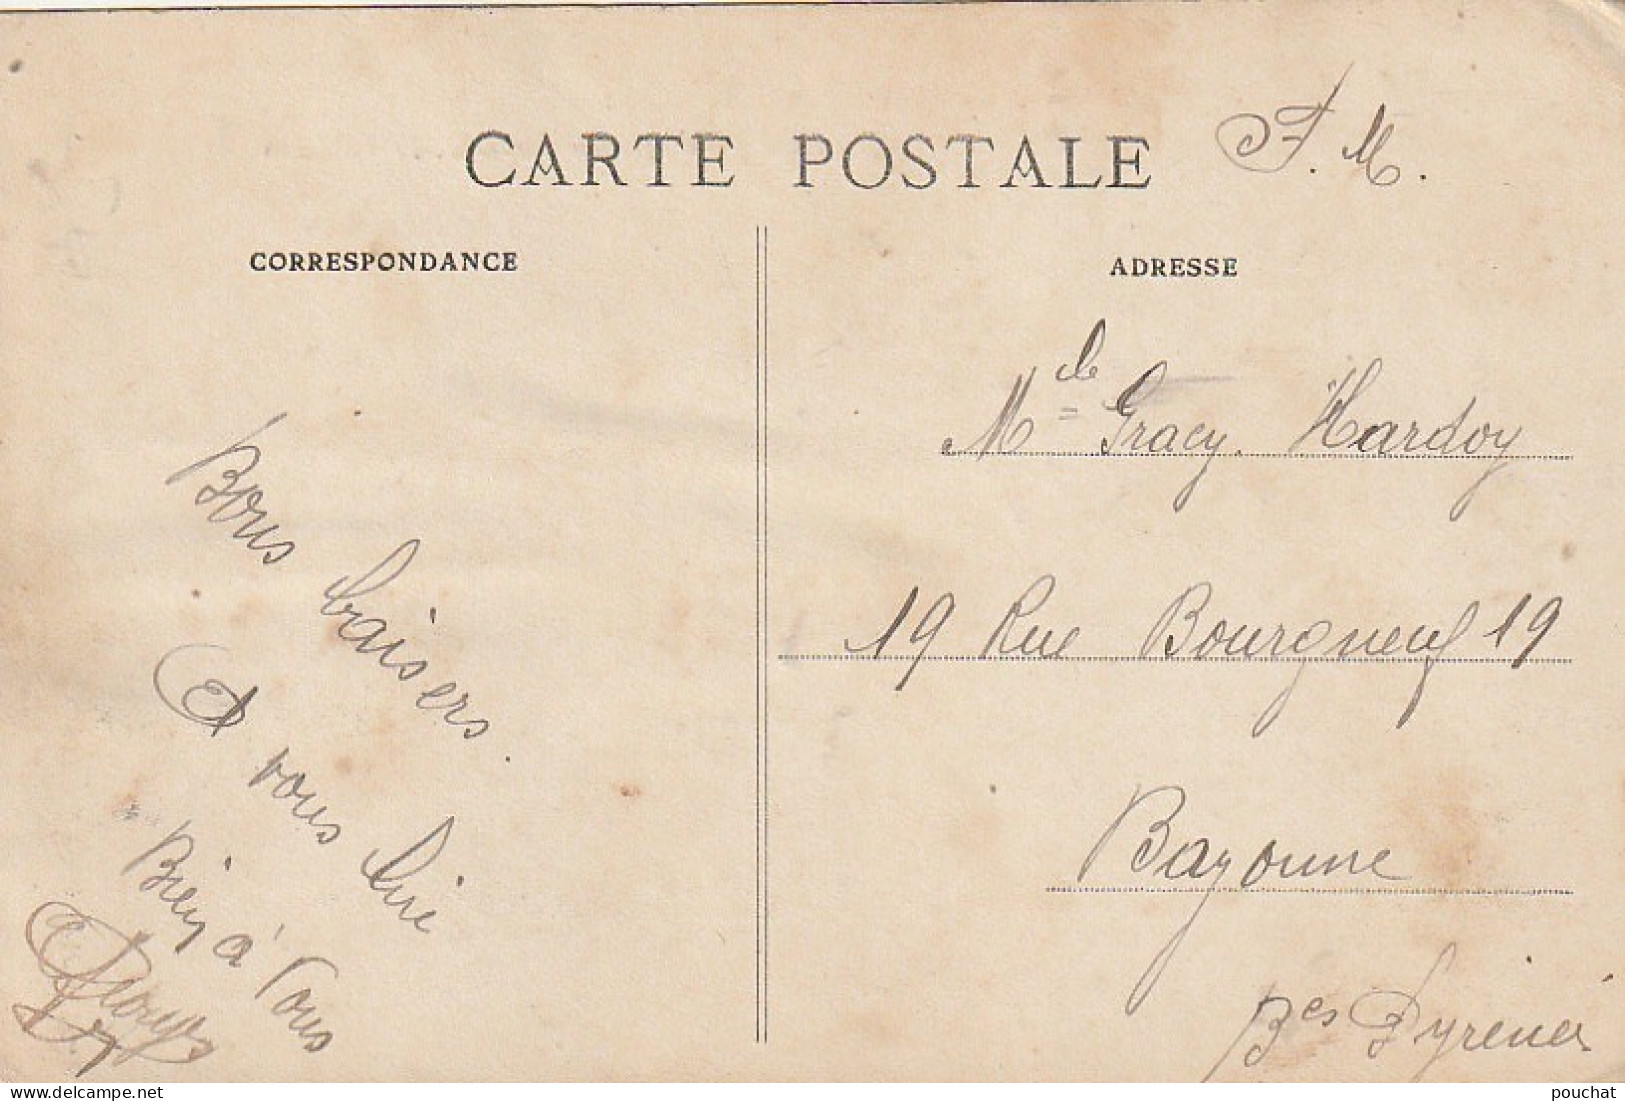 CARTE POSTALE
F. M.
CORRESPONDANCE
Bons baisers.
Et vous lire
Bien à Vous
ADRESSE
Mlle Gracy. Hardoy
19 Rue Bourgneuf 19
Bayonne
Bses Pyrénées
delcampe.net
pouchat